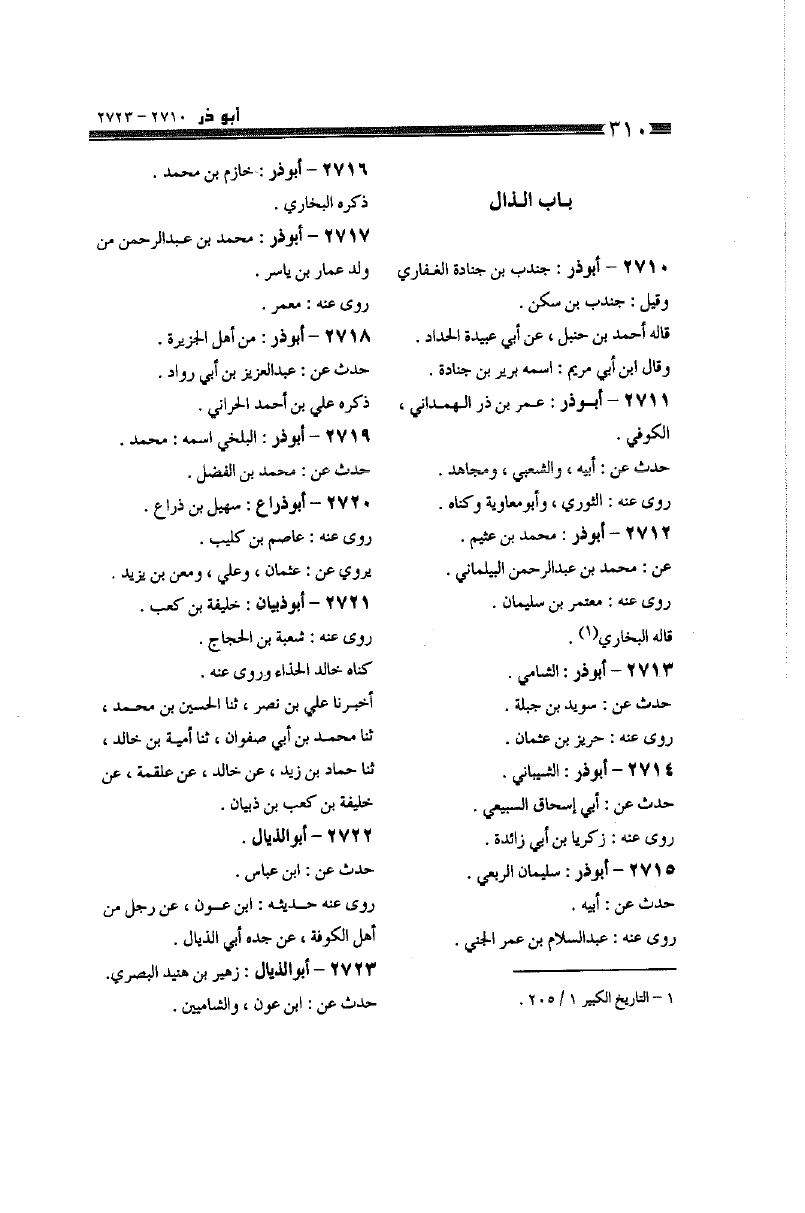 ٣١٠
أبو ذر ٢٧١٠ – ٢٧٢٣
باب الذال
٢٧١٠ – أبوذر : جندب بن جنادة الغفاري
وقيل : جندب بن سكن .
قاله أحمد بن حنبل ، عن أبي عبيدة الحداد .
وقال ابن أبي مريم : اسمه برير بن جنادة .
٢٧١١ – أبوذر : عمر بن ذر الهمداني ،
الكوفي .
حدث عن : أبيه ، والشعبي ، ومجاهد .
روى عنه : الثوري ، وأبومعاوية وكناه .
٢٧١٢ – أبوذر : محمد بن عثيم .
عن : محمد بن عبدالرحمن البيلماني .
روى عنه : معتمر بن سليمان .
قاله البخاري(١) .
٢٧١٣ – أبوذر : الشامي .
حدث عن : سويد بن جبلة .
روى عنه : حريز بن عثمان .
٢٧١٤ – أبوذر : الشيباني .
حدث عن : أبي إسحاق السبيعي .
روى عنه : زكريا بن أبي زائدة .
٢٧١٥ – أبوذر : سليمان الربعي .
حدث عن : أبيه .
روى عنه : عبدالسلام بن عمر الجني .
١ – التاريخ الكبير ١ / ٢٠٥ .
٢٧١٦ – أبوذر : خازم بن محمد .
ذكره البخاري .
٢٧١٧ – أبوذر : محمد بن عبدالرحمن من
ولد عمار بن ياسر .
روى عنه : معمر .
٢٧١٨ – أبوذر : من أهل الجزيرة .
حدث عن : عبدالعزيز بن أبي رواد .
ذكره علي بن أحمد الحراني .
٢٧١٩ – أبوذر : البلخي اسمه : محمد .
حدث عن : محمد بن الفضل .
٢٧٢٠ – أبوذراع : سهيل بن ذراع .
روى عنه : عاصم بن كليب .
يروي عن : عثمان ، وعلي ، ومعن بن يزيد .
٢٧٢١ – أبوذبيان : خليفة بن كعب .
روى عنه : شعبة بن الحجاج .
كناه خالد الحذاء وروى عنه .
أخبرنا علي بن نصر ، ثنا الحسين بن محمد ،
ثنا محمد بن أبي صفوان ، ثنا أمية بن خالد ،
ثنا حماد بن زيد ، عن خالد ، عن علقمة ، عن
خليفة بن كعب بن ذبيان .
٢٧٢٢ – أبوالذيال .
حدث عن : ابن عباس .
روى عنه حديثه : ابن عون ، عن رجل من
أهل الكوفة ، عن جده أبي الذيال .
٢٧٢٣ – أبوالذيال : زهير بن هنيد البصري.
حدث عن : ابن عون ، والشاميين .